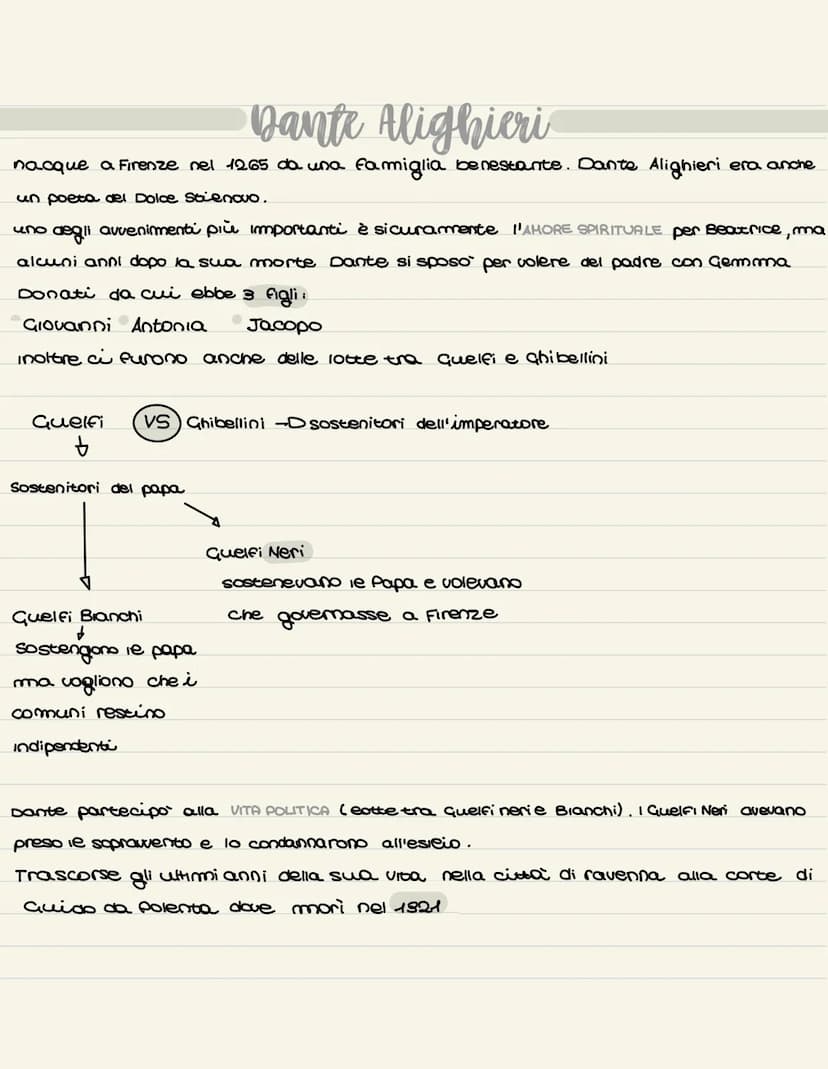 Dante Alighieri
nacque a Firenze nel 1265 da una famiglia benestante. Dante Alighieri era anche
un poeta del Dolce Stilnovo.
uno degli avvenimenti più importanti è sicuramente l'AMORE SPIRITUALE per Beatrice, ma
alcuni anni dopo la sua morte Dante si sposò per volere del padre con Gemma
Donati da cui ebbe 3 figli:
Giovanni Antonia Jacopo
inoltre ci furono anche delle lotte tra Guelfi e Ghibellini
Guelfi VS Ghibellini → sostenitori dell'imperatore
Sostenitori del papa
Guelfi Neri
sostenevano il Papa e volevano
che governasse a Firenze
Guelfi Bianchi
Sostengono il papa
ma vogliono che i
comuni restino
indipendenti
Dante partecipò alla VITA POLITICA (lotte tra Guelfi neri e Bianchi). I Guelfi Neri avevano
preso il sopravvento e lo condannarono all'esilio.
Trascorse gli ultimi anni della sua vita nella città di ravenna alla corte di
Guido da Polenta dove morì nel 1321